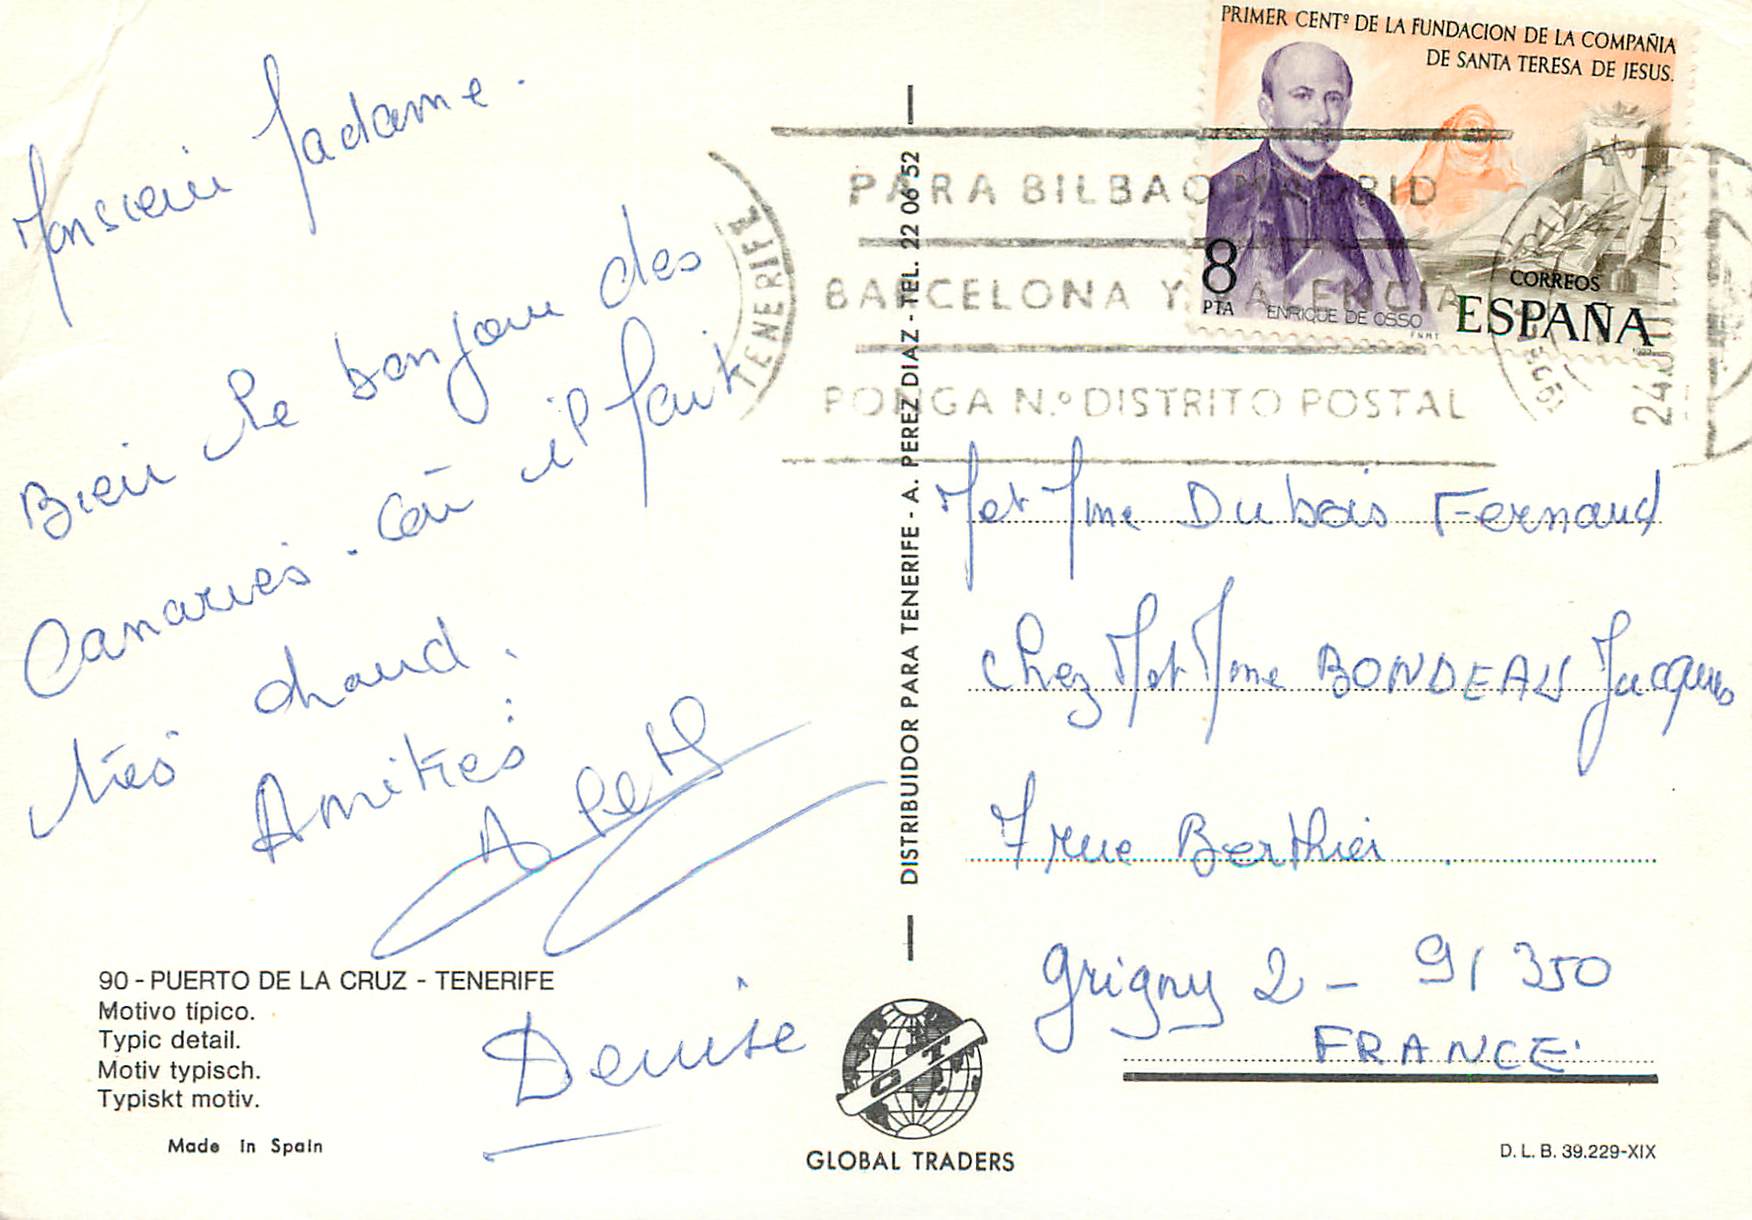 Monsieur Madame.
Bien le bonjour des
Canaries. où il fait
très chaud.
Amitiés:
Denise
90 - PUERTO DE LA CRUZ - TENERIFE
Motivo típico.
Typic detail.
Motiv typisch.
Typiskt motiv.
Made In Spain
DISTRIBUIDOR PARA TENERIFE - A. PEREZ DIAZ - TEL. 22 06 52
GLOBAL TRADERS
PRIMER CENTº DE LA FUNDACION DE LA COMPAÑIA
DE SANTA TERESA DE JESUS.
8
PTA
ENRIQUE DE OSSO
CORREOS
ESPAÑA
TENERIFE
PARA BILBAO MADRID
BARCELONA Y VALENCIA
PONGA N.º DISTRITO POSTAL
M et Mme Dubois Fernand
chez M et Mme BONDEAU Jacques
7 rue Berthier
Grigny 2 - 91 350
FRANCE.
D. L. B. 39.229-XIX